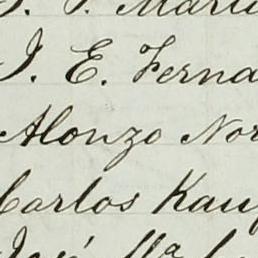 J. E. Ferna
Alonzo Nor
Carlos Kau
José Mª